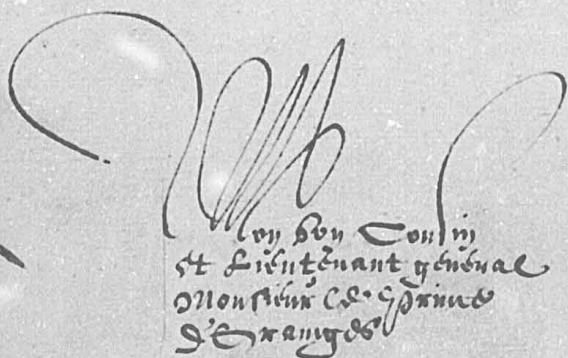 Mon bon Cousin
et Lieutenant general
Monsieur Le Prince
d'Oranges